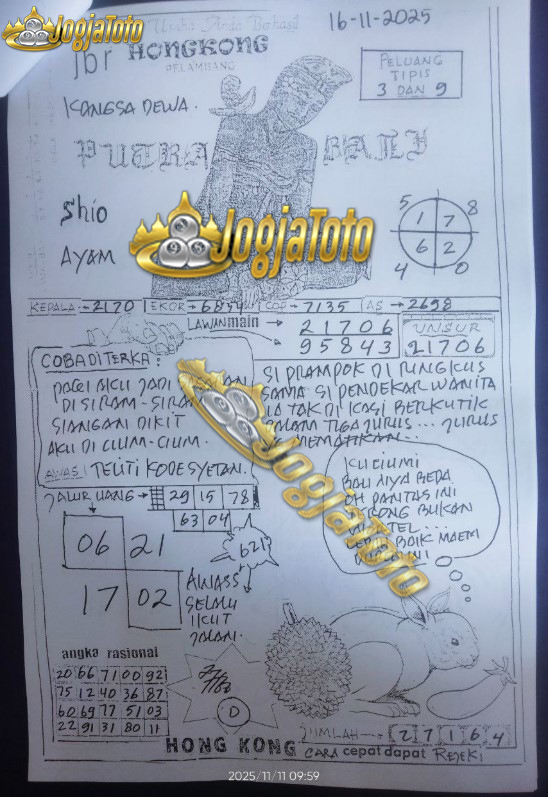 JogjaToto
Usaha Anda Berhasil
16-11-2025
jbr HONGKONG
PELAMBANG
PELUANG
TIPIS
3 DAN 9
KANGSA DEWA.
PUTRA BALI
Shio
AYAM
JogjaToto
5 1 7 8
4 6 2 0
KEPALA → 2170 EKOR → COP → 7135 AS → 2698
LAWAN main → 21706
95843
UNSUR
21706
COBA DITERKA:
PAGI AKU JADI
DI SIRAM - SIRAM
SIANGAN DIKIT
AKU DI CIUM-CIUM.
AWAS! TELITI KODE SYETAN.
SI PRAMPOK DI RINGKUS
SAMA SI PENDEKAR WANITA
IA TAK DI KASI BERKUTIK
DALAM TIGA JURUS... JURUS
JogjaToto
KU CIUMI
BAU NYA BEDA
OH PANTAS INI
BUKAN
LEBIH BAIK MAEM
JALUR UANG → 29 15 78
63 04
06 21
17 02
621
AWASS
SELALU
IKUT
JALAN.
angka rasional
20 66 71 00 92
75 12 40 36 87
60 69 77 51 03
22 91 31 80 11
D
JUMLAH → 2 7 1 6 4
HONG KONG CARA cepat dapat REJEKI
2025/11/11 09:59